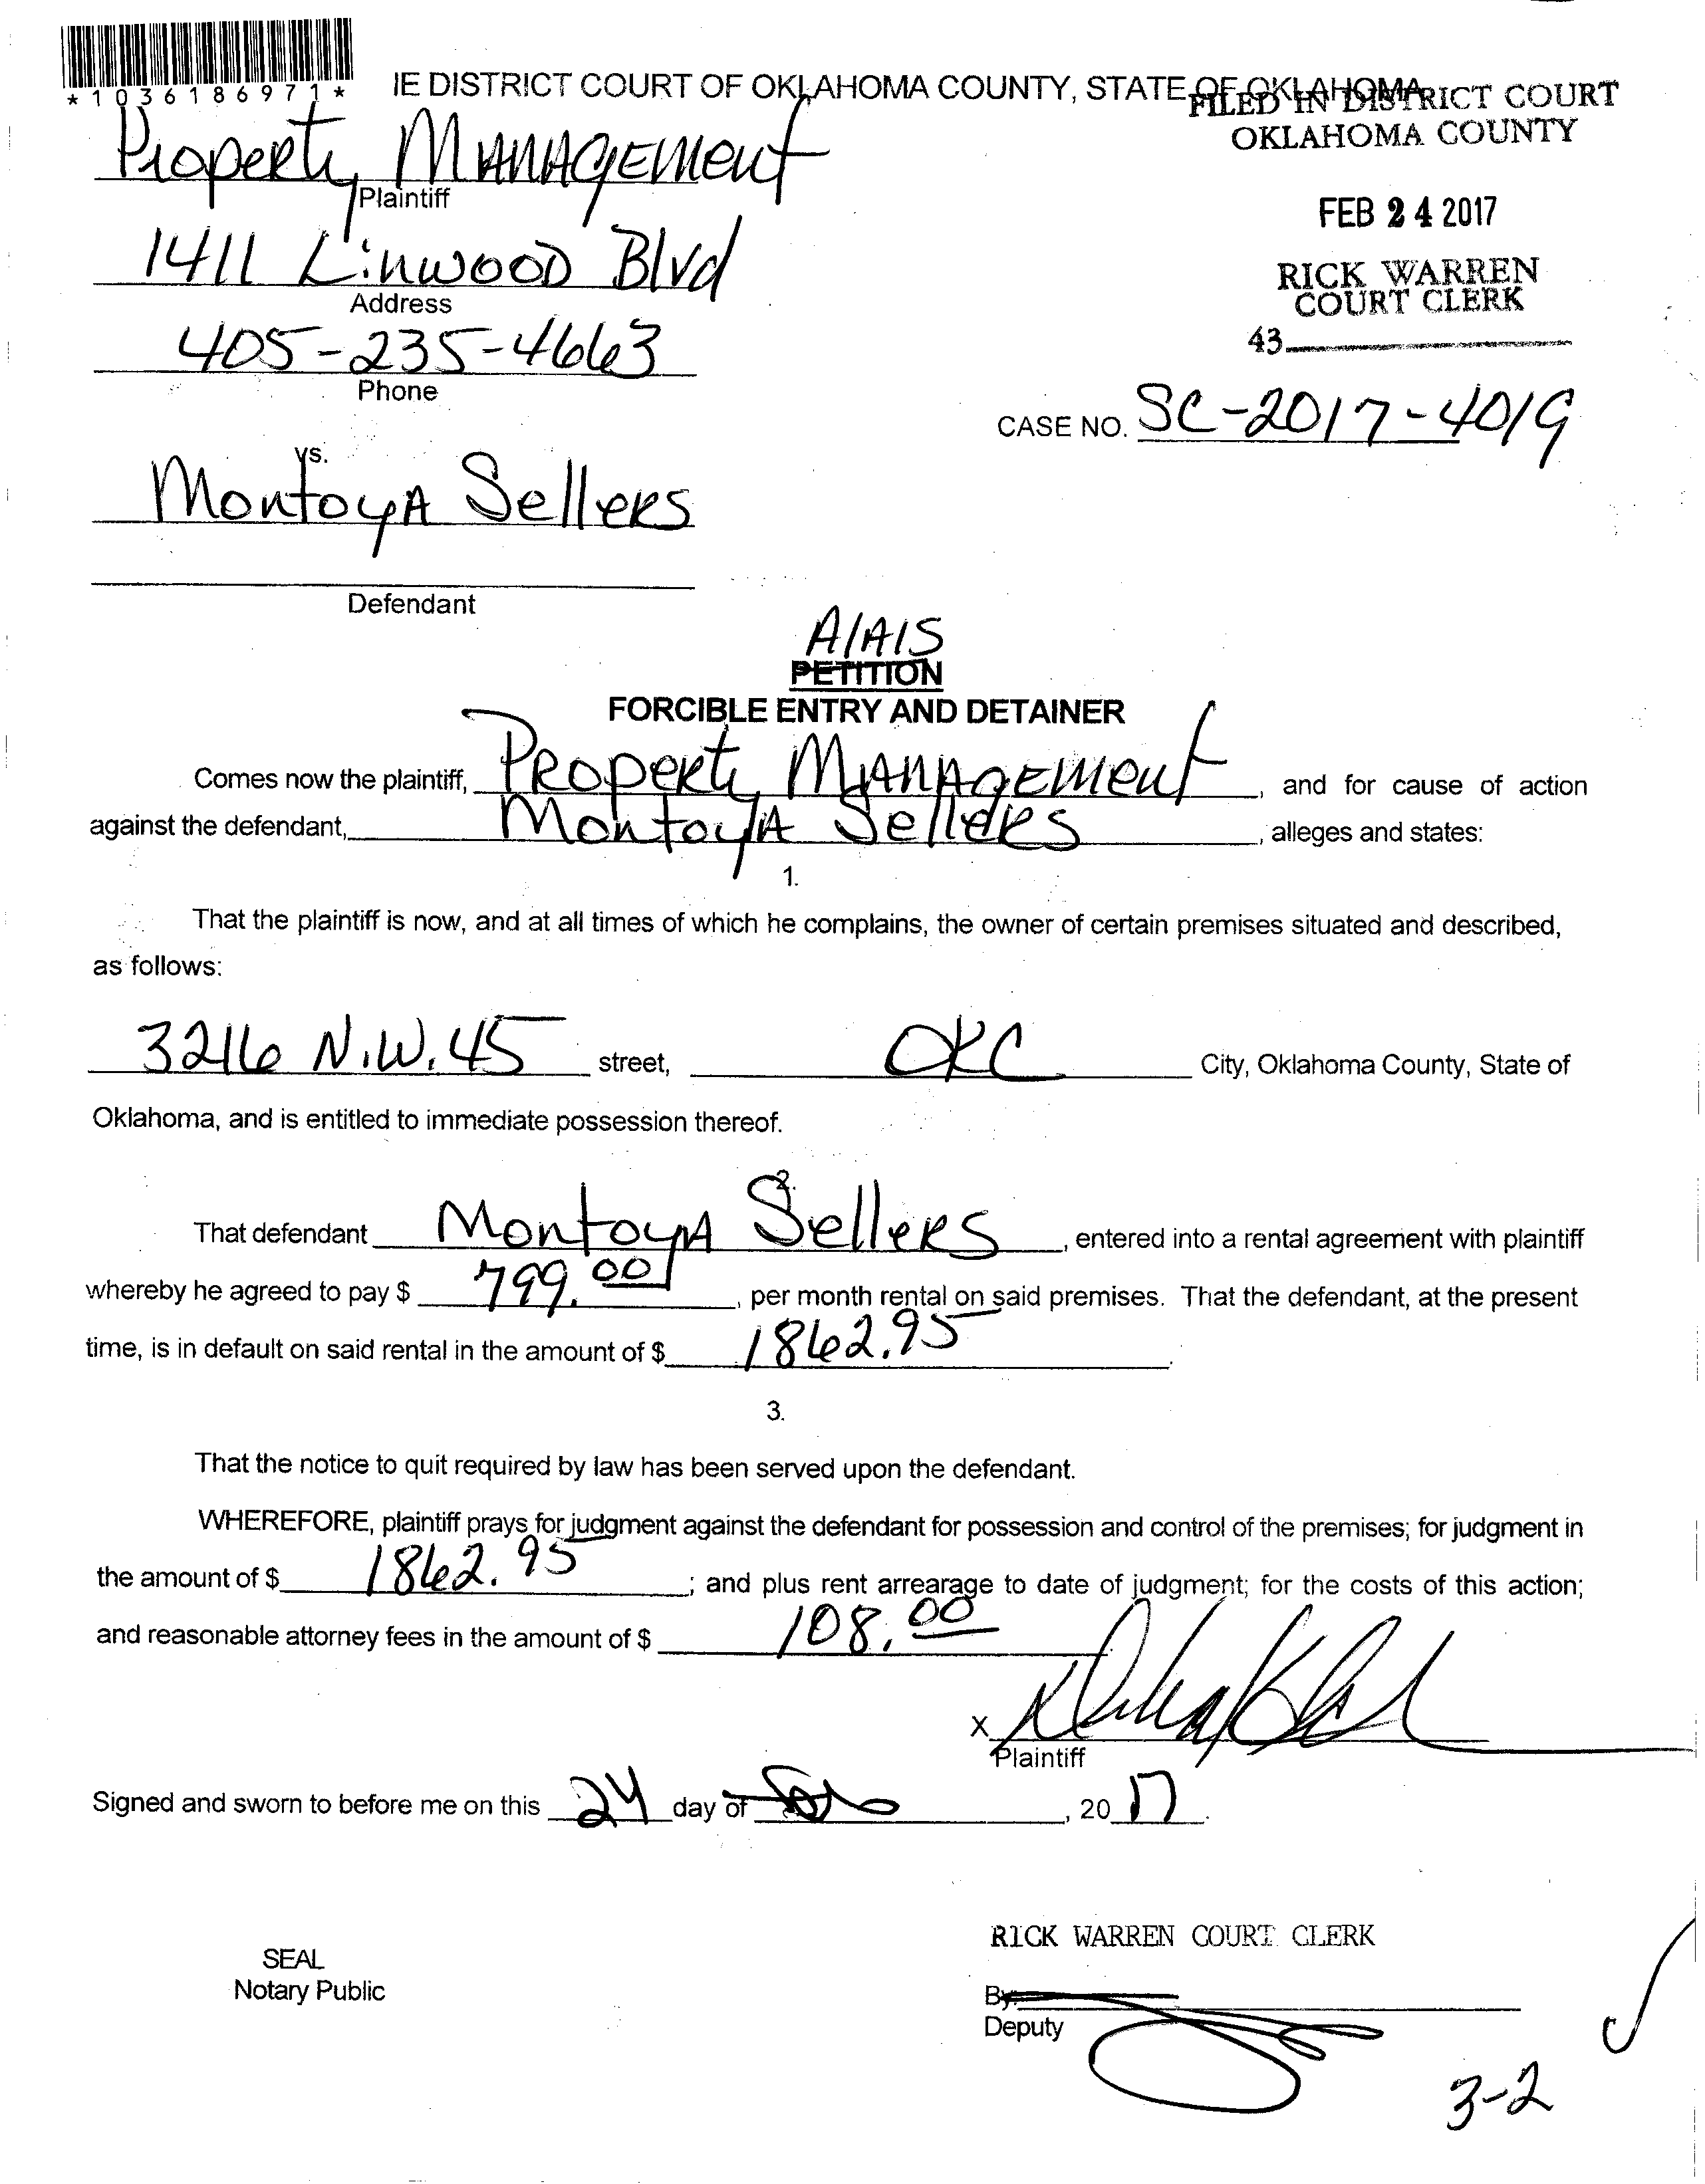 *1036186971*
IE DISTRICT COURT OF OKLAHOMA COUNTY, STATE OF OKLAHOMA
FILED IN DISTRICT COURT
OKLAHOMA COUNTY
Property Management
Plaintiff
FEB 24 2017
1411 Linwood Blvd
Address
RICK WARREN
COURT CLERK
405-235-4663
43
Phone
CASE NO. SC-2017-4019
vs.
Montoya Sellers
Defendant
AlAIS
PETITION
FORCIBLE ENTRY AND DETAINER
Comes now the plaintiff, Property Management, and for cause of action
against the defendant, Montoya Sellers, alleges and states:
1.
That the plaintiff is now, and at all times of which he complains, the owner of certain premises situated and described,
as follows:
3216 N.W. 45 street, OKC City, Oklahoma County, State of
Oklahoma, and is entitled to immediate possession thereof.
2.
That defendant Montoya Sellers, entered into a rental agreement with plaintiff
whereby he agreed to pay $ 799.00, per month rental on said premises. That the defendant, at the present
time, is in default on said rental in the amount of $ 1862.95.
3.
That the notice to quit required by law has been served upon the defendant.
WHEREFORE, plaintiff prays for judgment against the defendant for possession and control of the premises; for judgment in
the amount of $ 1862.95; and plus rent arrearage to date of judgment; for the costs of this action;
and reasonable attorney fees in the amount of $ 108.00.
X
Plaintiff
Signed and sworn to before me on this 24 day of, 20 17.
RICK WARREN COURT CLERK
SEAL
Notary Public
By:
Deputy
3-2